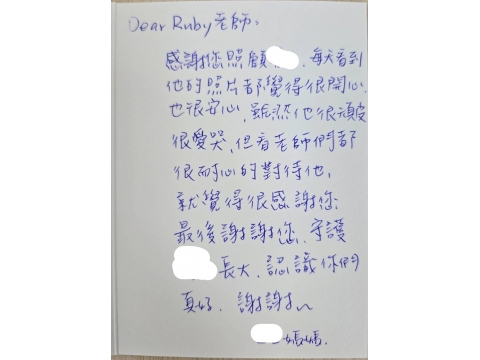 Dear Ruby老師。
感謝您照顧，每天看到
他的照片都覺得很開心
也很安心，雖然他很頑皮
很愛哭，但看老師們都
很耐心的對待他，
就覺得很感謝您
最後謝謝您，守護
長大，認識你們
真好，謝謝～
媽媽.